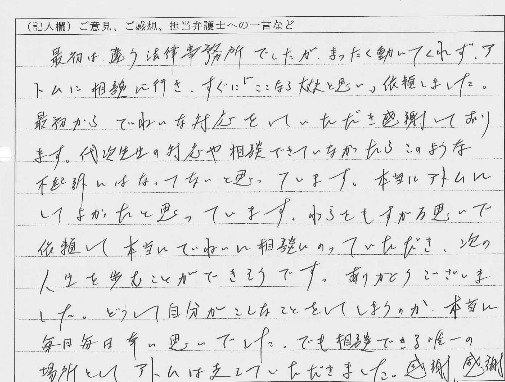 (記入欄) ご意見、ご感想、担当弁護士への一言など
最初は違う法律事務所でしたが、まったく動いてくれず、ア
トムに相談に行き、すぐに「ここなら大丈夫と思い」依頼しました。
最初から ていねいな対応をしていただき感謝しており
ます。代先生の対応や相談できていなかったらこのような
不起訴にはなってないと思っています。本当にアトムに
してよかったと思っています。わらをもすがる思いで
依頼して本当にていねいに相談にのっていただき、次の
人生を歩むことができそうです。ありがとうございま
した。どうして自分がこんなことをしてしまうのか、本当に
毎日毎日辛い思いでした。でも相談できる唯一の
場所としてアトムは支えていただきました。感謝、感謝